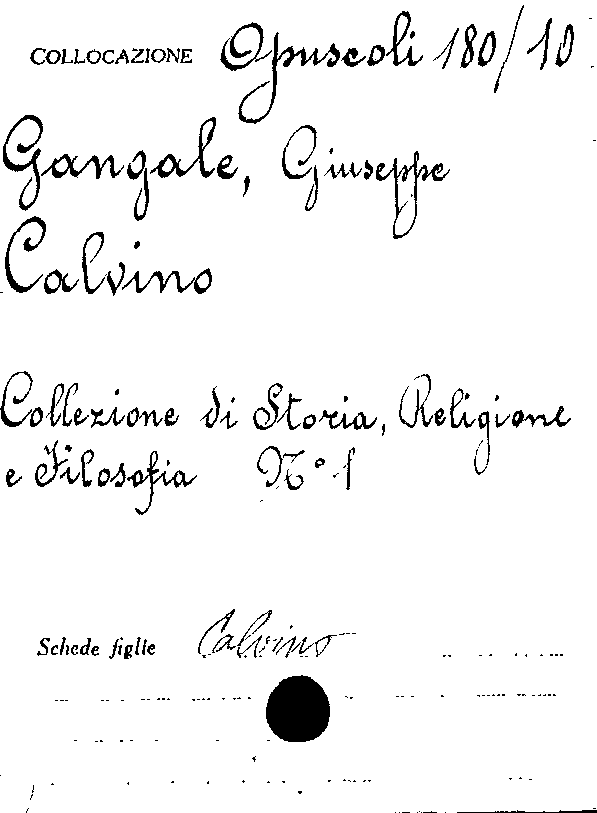 COLLOCAZIONE Opuscoli 180/10
Gangale, Giuseppe
Calvino
Collezione di Storia, Religione
e Filosofia N° 1
Schede figlie Calvino